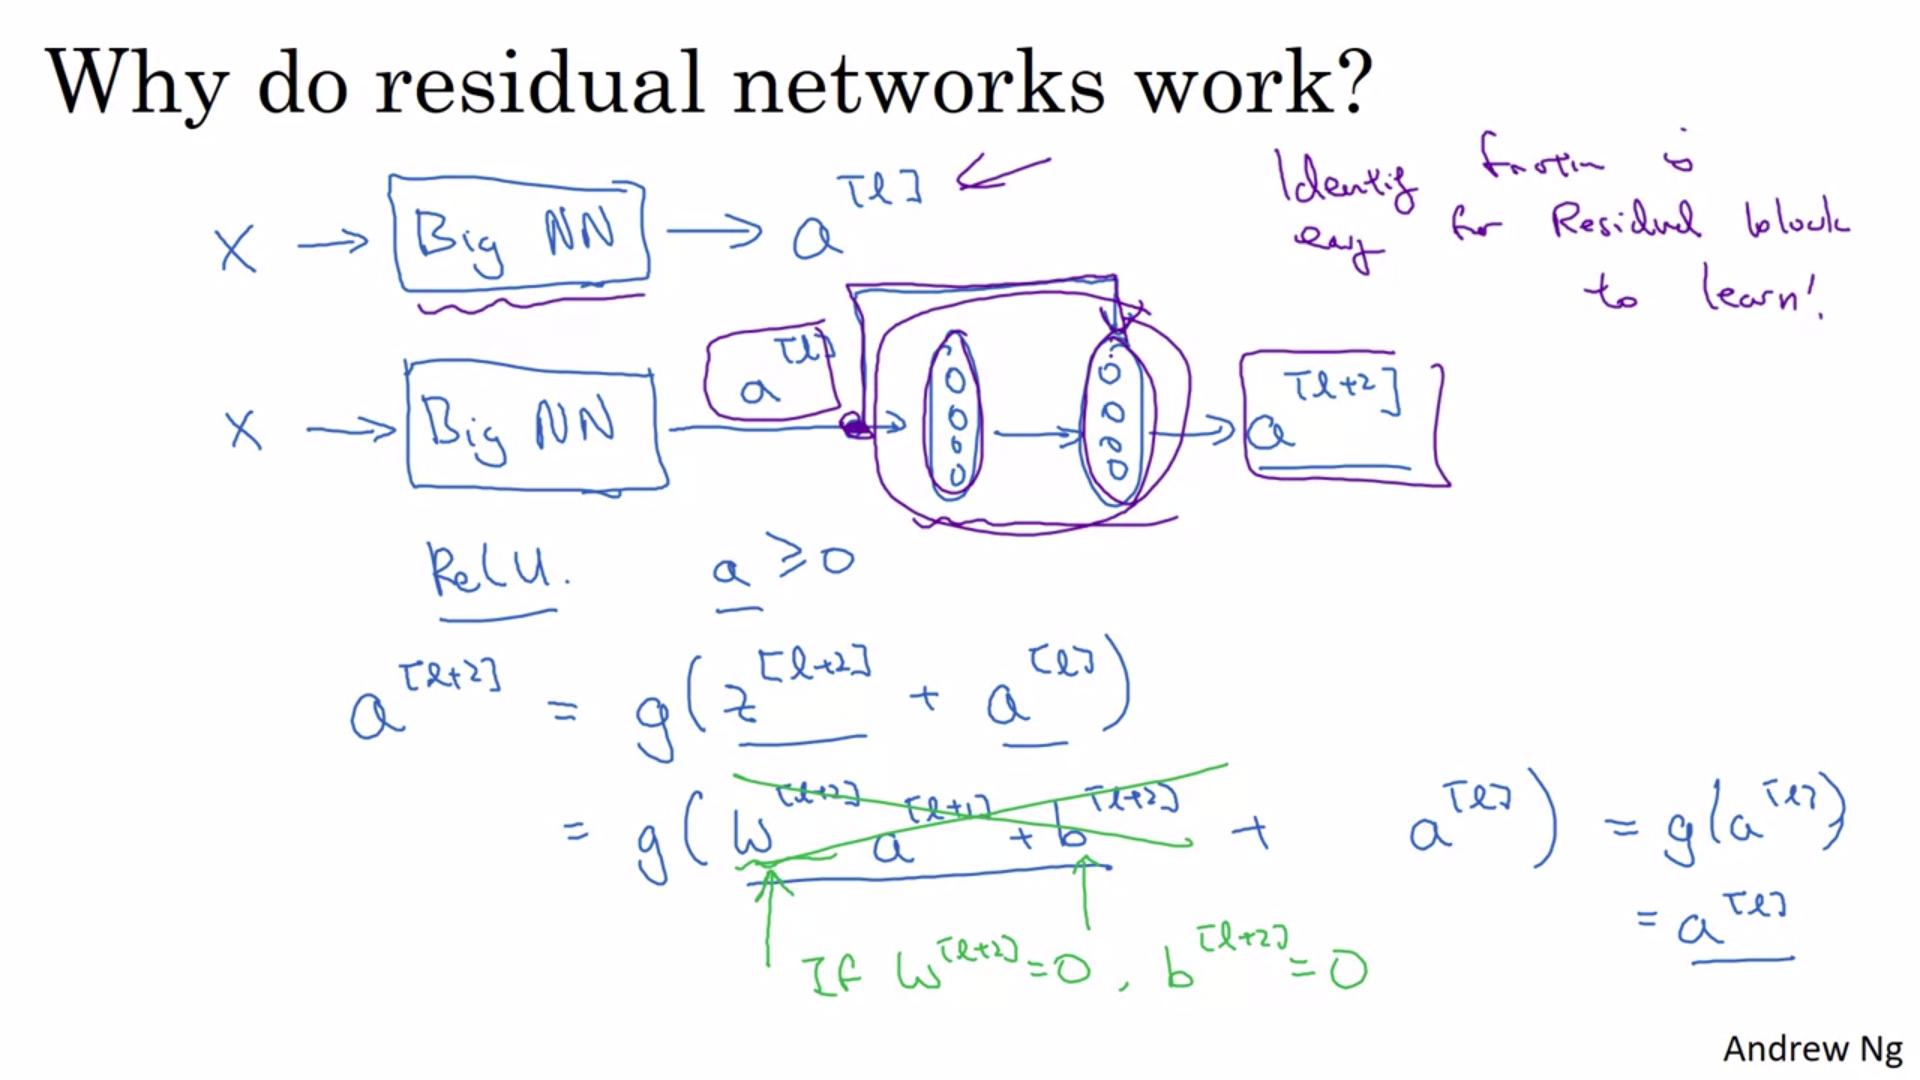 Why do residual networks work?
X → Big NN → a^[l]
Identity function is
easy for Residual block
to learn!
X → Big NN → a^[l] → → a^[l+2]
ReLU. a ≥ 0
a^[l+2] = g(z^[l+2] + a^[l])
= g(W^[l+2] a^[l+1] + b^[l+2] + a^[l]) = g(a^[l])
= a^[l]
If W^[l+2] = 0, b^[l+2] = 0
Andrew Ng